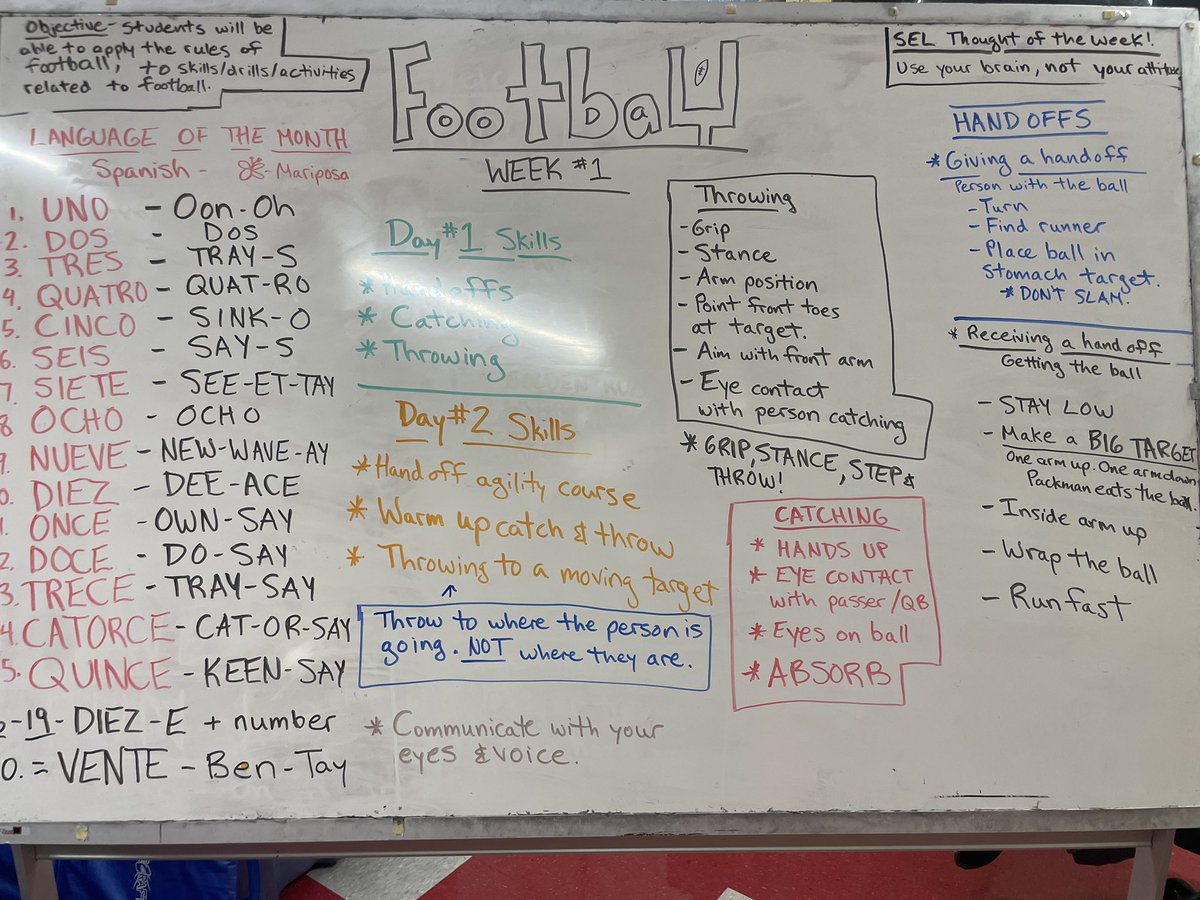 Objective - Students will be
able to apply the rules of
football, to skills/drills/activities
related to football.
Football
WEEK #1
SEL Thought of the week!
Use your brain, not your attitude
LANGUAGE OF THE MONTH
Spanish - Mariposa
1. UNO - Oon-Oh
2. DOS - DOS
3. TRES - TRAY-S
4. QUATRO - QUAT-RO
5. CINCO - SINK-O
6. SEIS - SAY-S
7. SIETE - SEE-ET-TAY
8 OCHO - OCHO
9. NUEVE - NEW-WAVE-AY
0. DIEZ - DEE-ACE
1. ONCE - OWN-SAY
2. DOCE - DO-SAY
3. TRECE - TRAY-SAY
4. CATORCE - CAT-OR-SAY
5. QUINCE - KEEN-SAY
-19- DIEZ-E + number
0. = VENTE - Ben-Tay
Day #1 Skills
* Handoffs
* Catching
* Throwing
Day #2 Skills
* Hand off agility course
* Warm up catch & throw
* Throwing to a moving target
Throw to where the person is
going. NOT where they are.
* Communicate with your
eyes & voice.
Throwing
- Grip
- Stance
- Arm position
- Point front toes
at target.
- Aim with front arm
- Eye contact
with person catching
* GRIP, STANCE, STEP &
THROW!
CATCHING
* HANDS UP
* EYE CONTACT
with passer/QB
* Eyes on ball
* ABSORB
HAND OFFS
* Giving a handoff
Person with the ball
- Turn
- Find runner
- Place ball in
stomach target.
* DON'T SLAM.
* Receiving a hand off
Getting the ball
- STAY LOW
- Make a BIG TARGET
One arm up. One arm down
Packman eats the ball.
- Inside arm up
- Wrap the ball
- Run fast